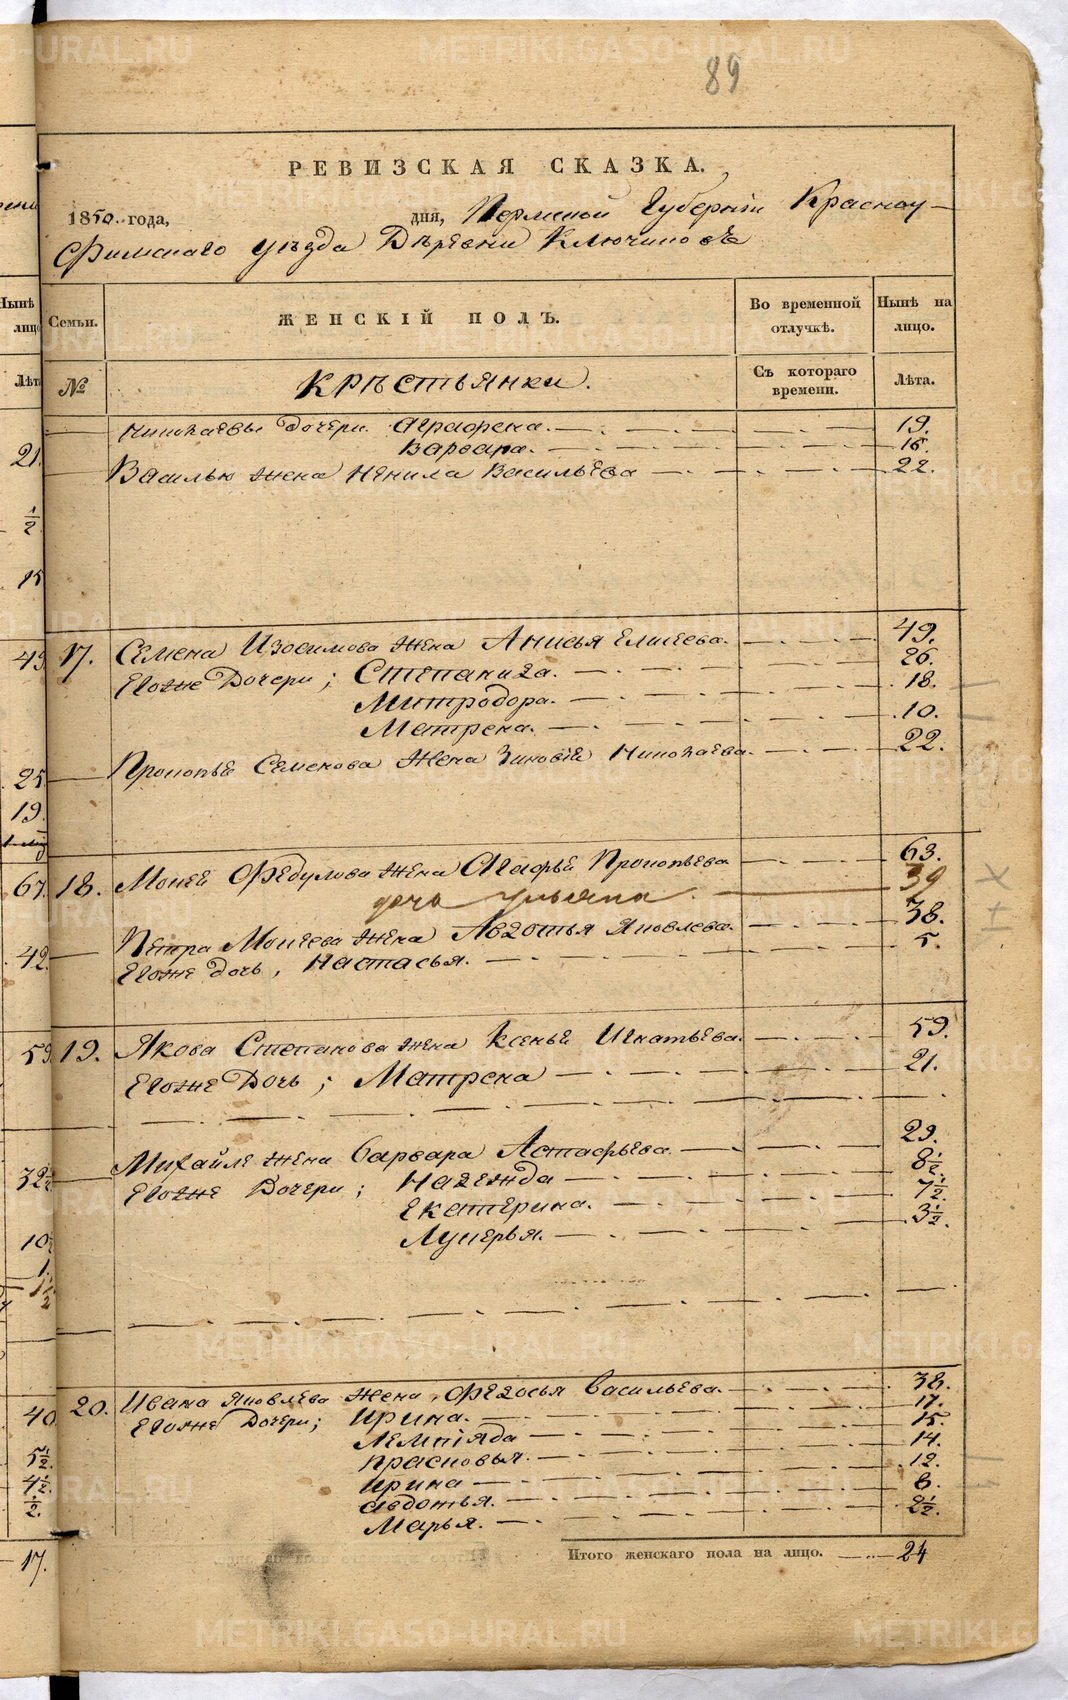 89
РЕВИЗСКАЯ СКАЗКА.
1850 года, дня, Пермской Губернiи Красноу-
фимскаго уѣзда Дѣревни Ключиковъ
Нынѣ
лицо
Семьи.
ЖЕНСКІЙ ПОЛЪ.
Во временной отлучкѣ.
Нынѣ на лицо.
Лѣта
№
Крѣстьянки.
Съ котораго времени.
Лѣта.
Николаевы дочери Аграфена. 19.
Варвара. 15.
21.
Василью жена Ненила Васильева 22.
1/2
15
49 17. Семена Изосимова жена Анисья Елисеева. 49.
Егоже Дочери; Степанида. 26.
Митродора. 18.
Матрена. 10.
25. Прокопьѣ Семенова жена Зиновiѣ Николаева. 22.
19.
67. 18. Мокей Федулова жена Агафьѣ Прокопьева 63.
дочь Ульяна. 39
42. Петра Мокеева жена Авдотья Яковлева. 38.
Егоже дочь, Настасья. 5.
59 19. Якова Степанова жена Ксеньѣ Игнатьева. 59.
Егоже Дочь; Матрена 21.
32 1/2 Михайлѣ жена Варвара Астафьева 29.
Егоже Дочери; Надежда 8 1/2.
Екатерина. 7 1/2.
Лукерья. 3 1/2.
10
1.
1 1/2
40 20. Ивана Яковлева жена Федосья Васильева. 38.
Егоже Дочери; Ирина. 17.
Лемпiяда 15.
5 1/2. Прасковья. 14.
4 1/2. Ирина 12.
1/2. Авдотья. 6.
Марья. 2 1/2.
17. Итого женскаго пола на лицо. 24
METRIKI.GASO-URAL.RU